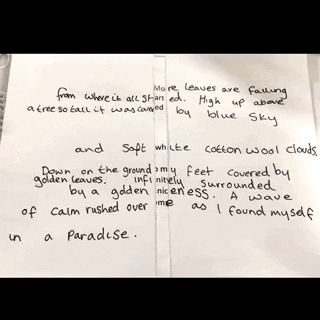 More leaves are falling
from where it all started. High up above
a tree so tall it was covered by blue sky
and soft white cotton wool clouds.
Down on the ground my feet covered by
golden leaves. Infinitely surrounded
by a golden niceness. A wave
of calm rushed over me as I found myself
in a paradise.